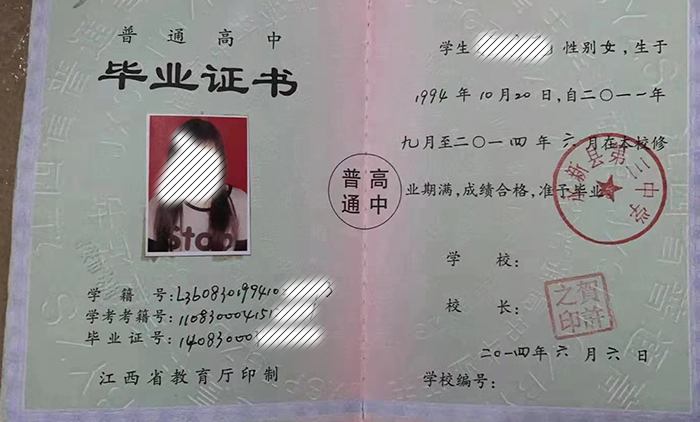 普通高中
毕业证书
Stop
学籍号:L360830199410
学考考籍号:110830004151
毕业证号:140830003
江西省教育厅印制
普通高中
学生 性别女,生于
1994年10月20日,自二〇一一年
九月至二〇一四年六月在本校修
业期满,成绩合格,准予毕业。
新县第三中学
学校:
校长:
贺许之印
二〇一四年六月六日
学校编号: